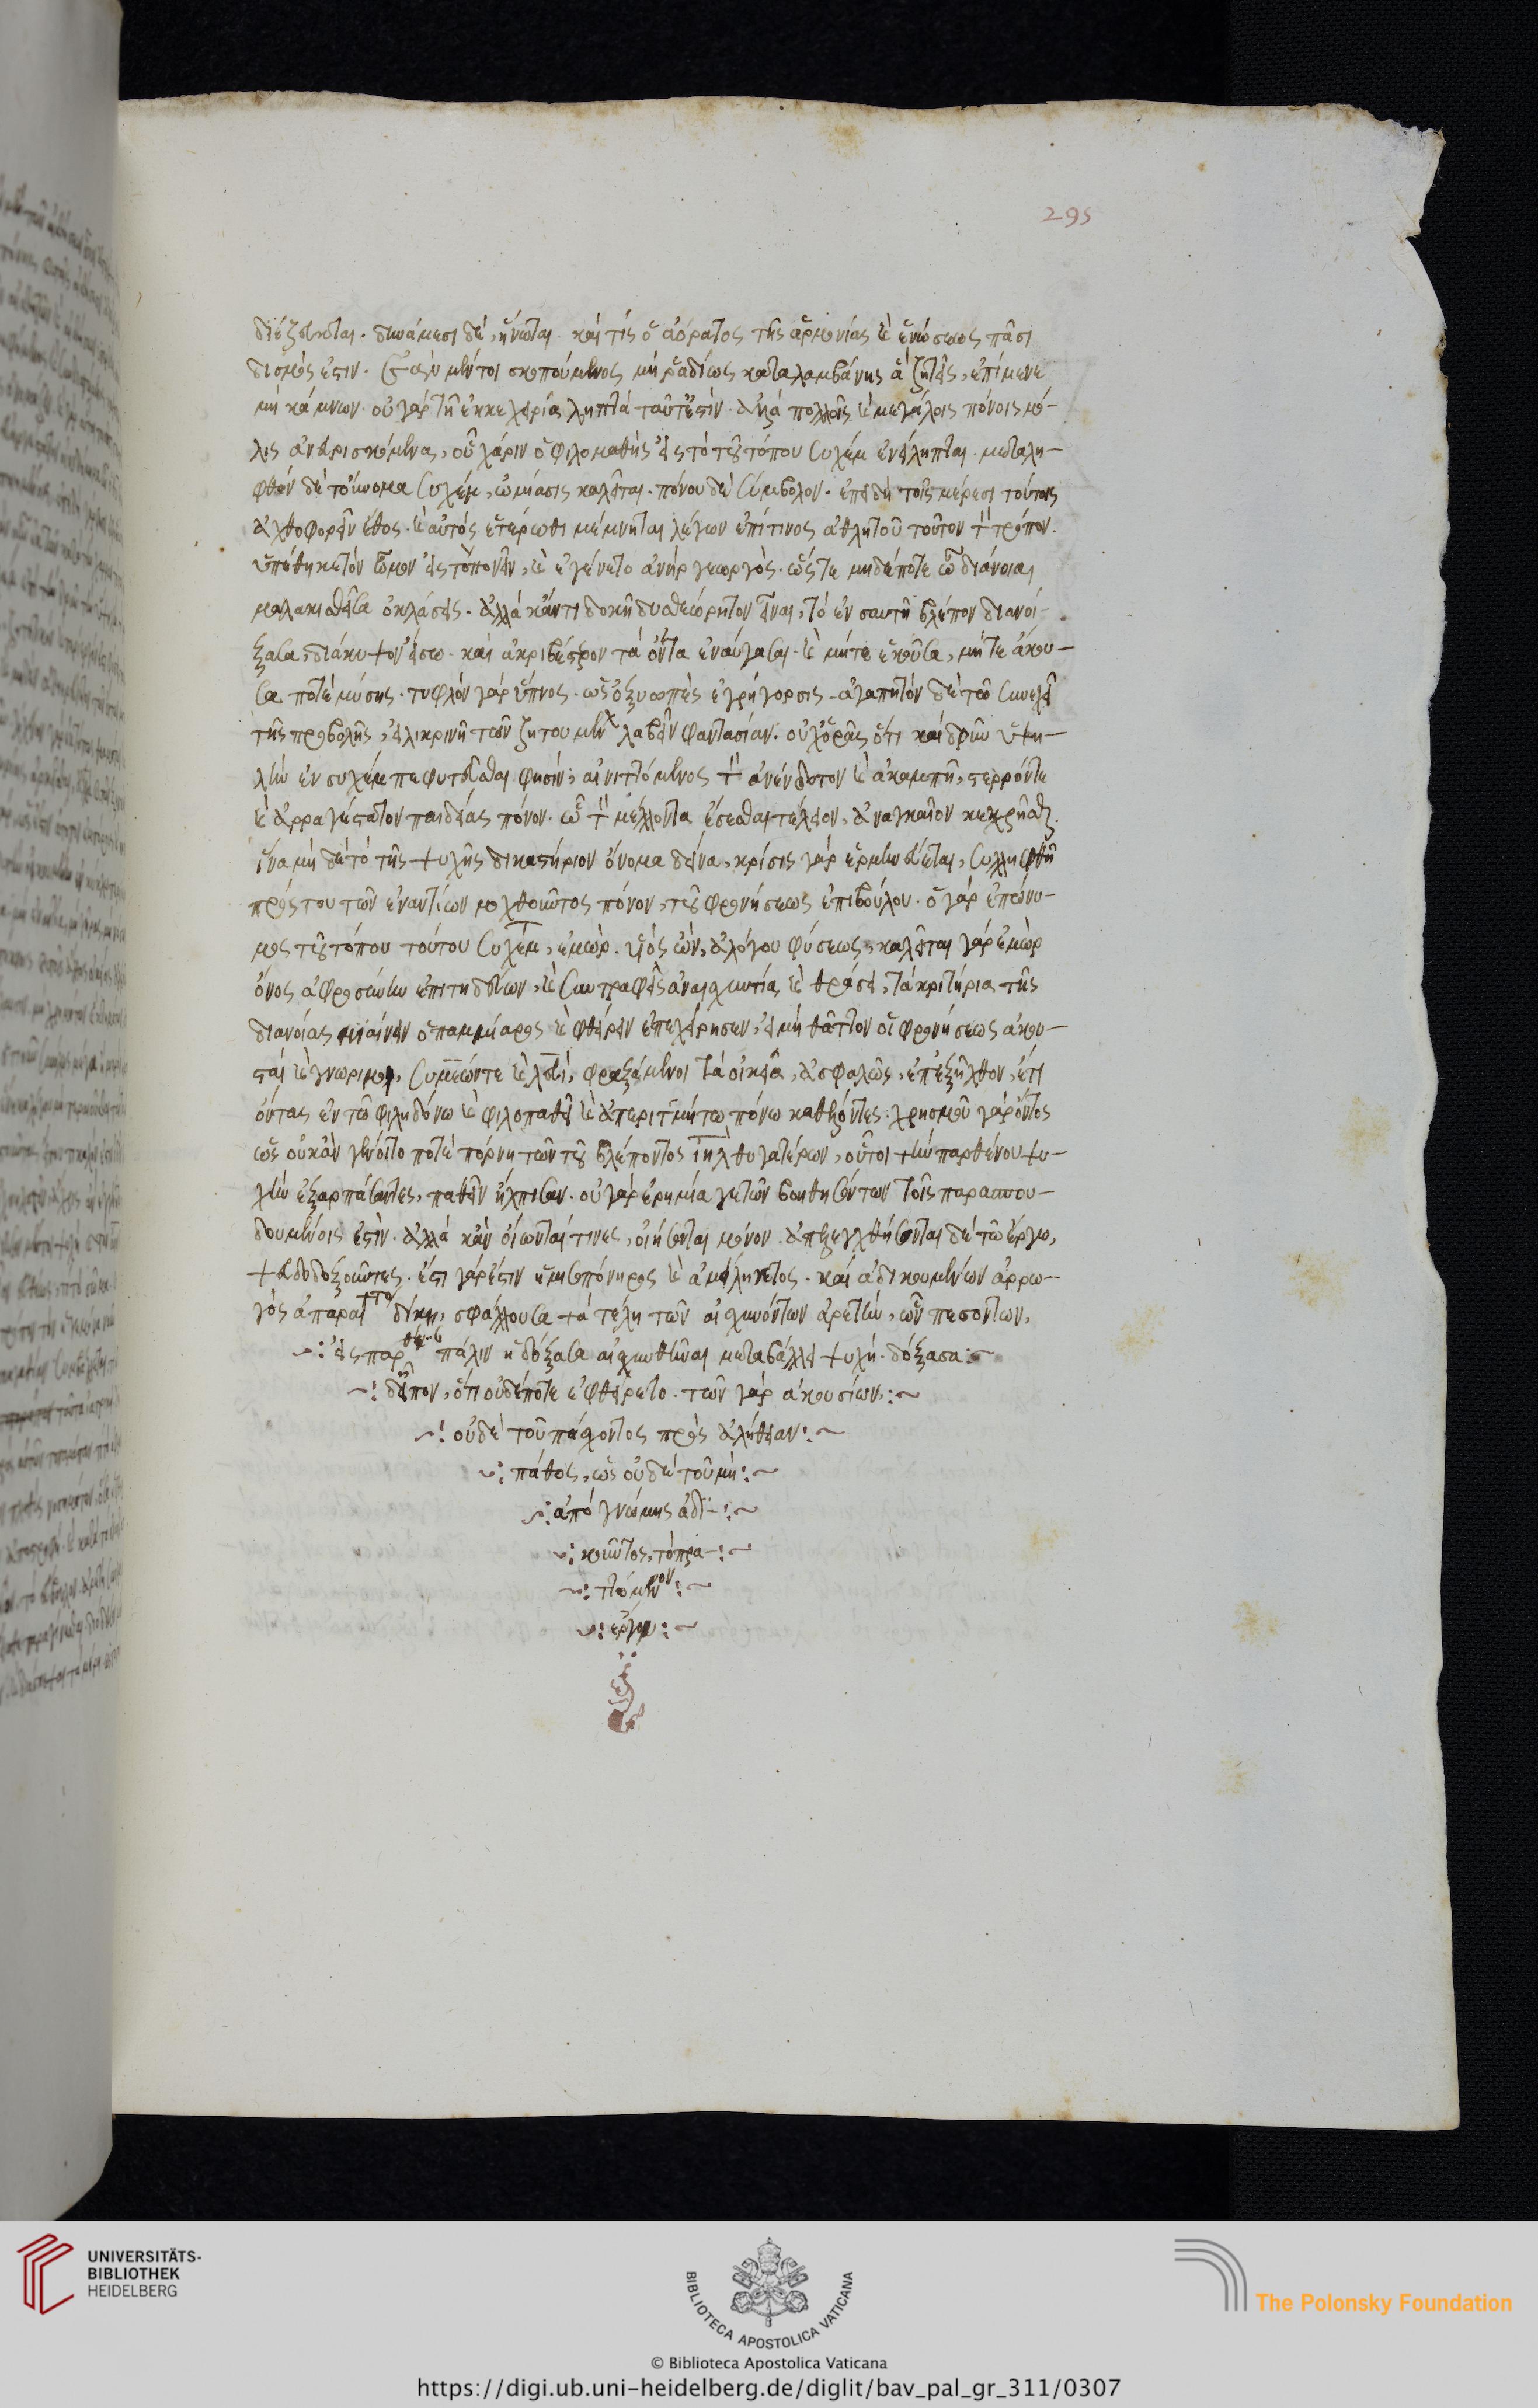 διέζευκται. δυνάμεσι δὲ, ἥνωται. καὶ τίς ὁ ἀόρατος τῆς ἁρμονίας καὶ ἑνώσεως πᾶσι
δεσμός ἐστιν. ἐὰν μέντοι σκοπούμενος μὴ ῥαδίως καταλαμβάνης ἃ ζητεῖς, ἐπίμενε
μὴ κάμνων. οὐ γὰρ τῇ ἐκκεχειρία ληπτὰ ταῦτ' ἐστίν. ἀλλὰ πολλοῖς καὶ μεγάλοις πόνοις μό-
λις ἀνευρισκόμενα, οὗ χάριν ὁ φιλομαθὴς εἰς τὸ τοῦ τόπου συχὲμ ἐνείληπται. μεταλη-
φθὲν δὲ τοὔνομα συχὲμ, ὠμίασις καλεῖται. πόνου δὲ σύμβολον. ἐπειδὴ τοῖς μέρεσι τούτοις
ἀχθοφορεῖν ἔθος. καὶ αὐτὸς ἑτέρωθι μέμνηται λέγων ἐπί τινος ἀθλητοῦ τοῦτον τὸν τρόπον.
ὑπέθηκε τὸν ὦμον εἰς τὸ πονεῖν, καὶ ἐγένετο ἀνὴρ γεωργός. ὥστε μηδέποτε ὦ διάνοια
μαλακισθεῖσα ὀκλάσεις. ἀλλὰ κἄν τι δοκῇ δυσθεώρητον εἶναι, τὸ ἐν σαυτῇ βλέπον διανοί-
ξασα, διάκυψον εἴσω. καὶ ἀκριβέστερον τὰ ὄντα ἐναύγασαι. καὶ μήτε ἑκοῦσα, μήτε ἄκου-
σα ποτὲ μύσης. τυφλὸν γὰρ ὕπνος. ὡς ὀξυωπὲς ἐγρήγορσις. ἀγαπητὸν δὲ τῶ συνεχεῖ
τῆς προσβολῆς, εἰλικρινῆ τῶν ζητουμένων λαβεῖν φαντασίαν. οὐχ ὁρᾶς ὅτι καὶ δρῦν ὑψη-
λὴν ἐν συχὲμ πεφυτεῦσθαι φησίν, αἰνιττόμενος τὸν ἀνένδοτον καὶ ἀκαμπῆ, στερρόν τε
καὶ ἀρραγέστατον παιδείας πόνον. ᾧ τὸν μέλλοντα ἔσεσθαι τέλειον, ἀναγκαῖον κεχρῆσθαι.
ἵνα μὴ δὲ τὸ τῆς ψυχῆς δικαστήριον ὄνομα δείνα, κρίσις γὰρ ἑρμηνεύεται, συλληφθῆ
πρὸς του τῶν ἐναντίων μοχθοῦντος πόνον, τοῦ φρονήσεως ἐπιβούλου. ὁ γὰρ ἐπώνυ-
μος τοῦ τόπου τούτου συχὲμ, ἐμώρ. υἱὸς ὢν, ἀλόγου φύσεως, καλεῖται γὰρ ἐμὼρ
ὄνος ἀφροσύνην ἐπιτηδεύων, καὶ συντραφεὶς ἀναισχυντία καὶ θράσει, τὰ κριτήρια τῆς
διανοίας μιαίνειν ὁ παμμίαρος καὶ φθείρειν ἐπεχείρησεν, εἰ μὴ θᾶττον οἱ φρονήσεως ἀκου-
σταὶ καὶ γνώριμοι, συμεών τε καὶ λευί, φραξάμενοι τὰ οἰκεῖα, ἀσφαλῶς, ἐπεξῆλθον, ἔτι
ὄντας ἐν τῶ φιληδόνω καὶ φιλοπαθεῖ καὶ ἀπεριτμήτω πόνω καθελόντες. χρησμοῦ γὰρ ὄντος
ὡς οὐκ ἂν γένοιτο ποτὲ πόρνη τῶν τοῦ βλέποντος ιηλ θυγατέρων, οὗτοι τὴν παρθένον ψυ-
χὴν ἐξαρπάσαντες, παθεῖν ἤλπισαν. οὐ γὰρ ἐρημία γε τῶν βοηθησόντων τοῖς παρασπον-
δουμένοις ἐστίν. ἀλλὰ κἂν οἴωνται τινες, οἰήσονται μόνον. ἀπελεγχθήσονται δὲ τῶ ἔργω,
ψευδοδοξοῦντες. ἔστι γὰρ ἔστιν ἡ μισοπόνηρος καὶ ἀμείλικτος. καὶ ἀδικουμένων ἀρρω-
γὸς ἀπαραί δίκη, σφάλλουσα τὰ τέλη τῶν αἰσχυνόντων ἀρετὴν, ὧν πεσόντων,
εἰς παρθένον πάλιν ἡ δόξασα αἰσχυνθῆναι μεταβάλλει ψυχή. δόξασα
δ' εἶπον, ὅτι οὐδέποτε ἐφθείρετο. τῶν γὰρ ἀκουσίων,
οὐδὲ τοῦ πάσχοντος πρὸς ἀλήθειαν
πάθος, ὡς οὐδὲ τοῦ μὴ
ἀπὸ γνώμης ἀδι-
κοῦντος, τὸ πρα-
ττόμενον
ἔργον
295
UNIVERSITÄTS-
BIBLIOTHEK
HEIDELBERG
BIBLIOTECA APOSTOLICA VATICANA
The Polonsky Foundation
© Biblioteca Apostolica Vaticana
https://digi.ub.uni-heidelberg.de/diglit/bav_pal_gr_311/0307